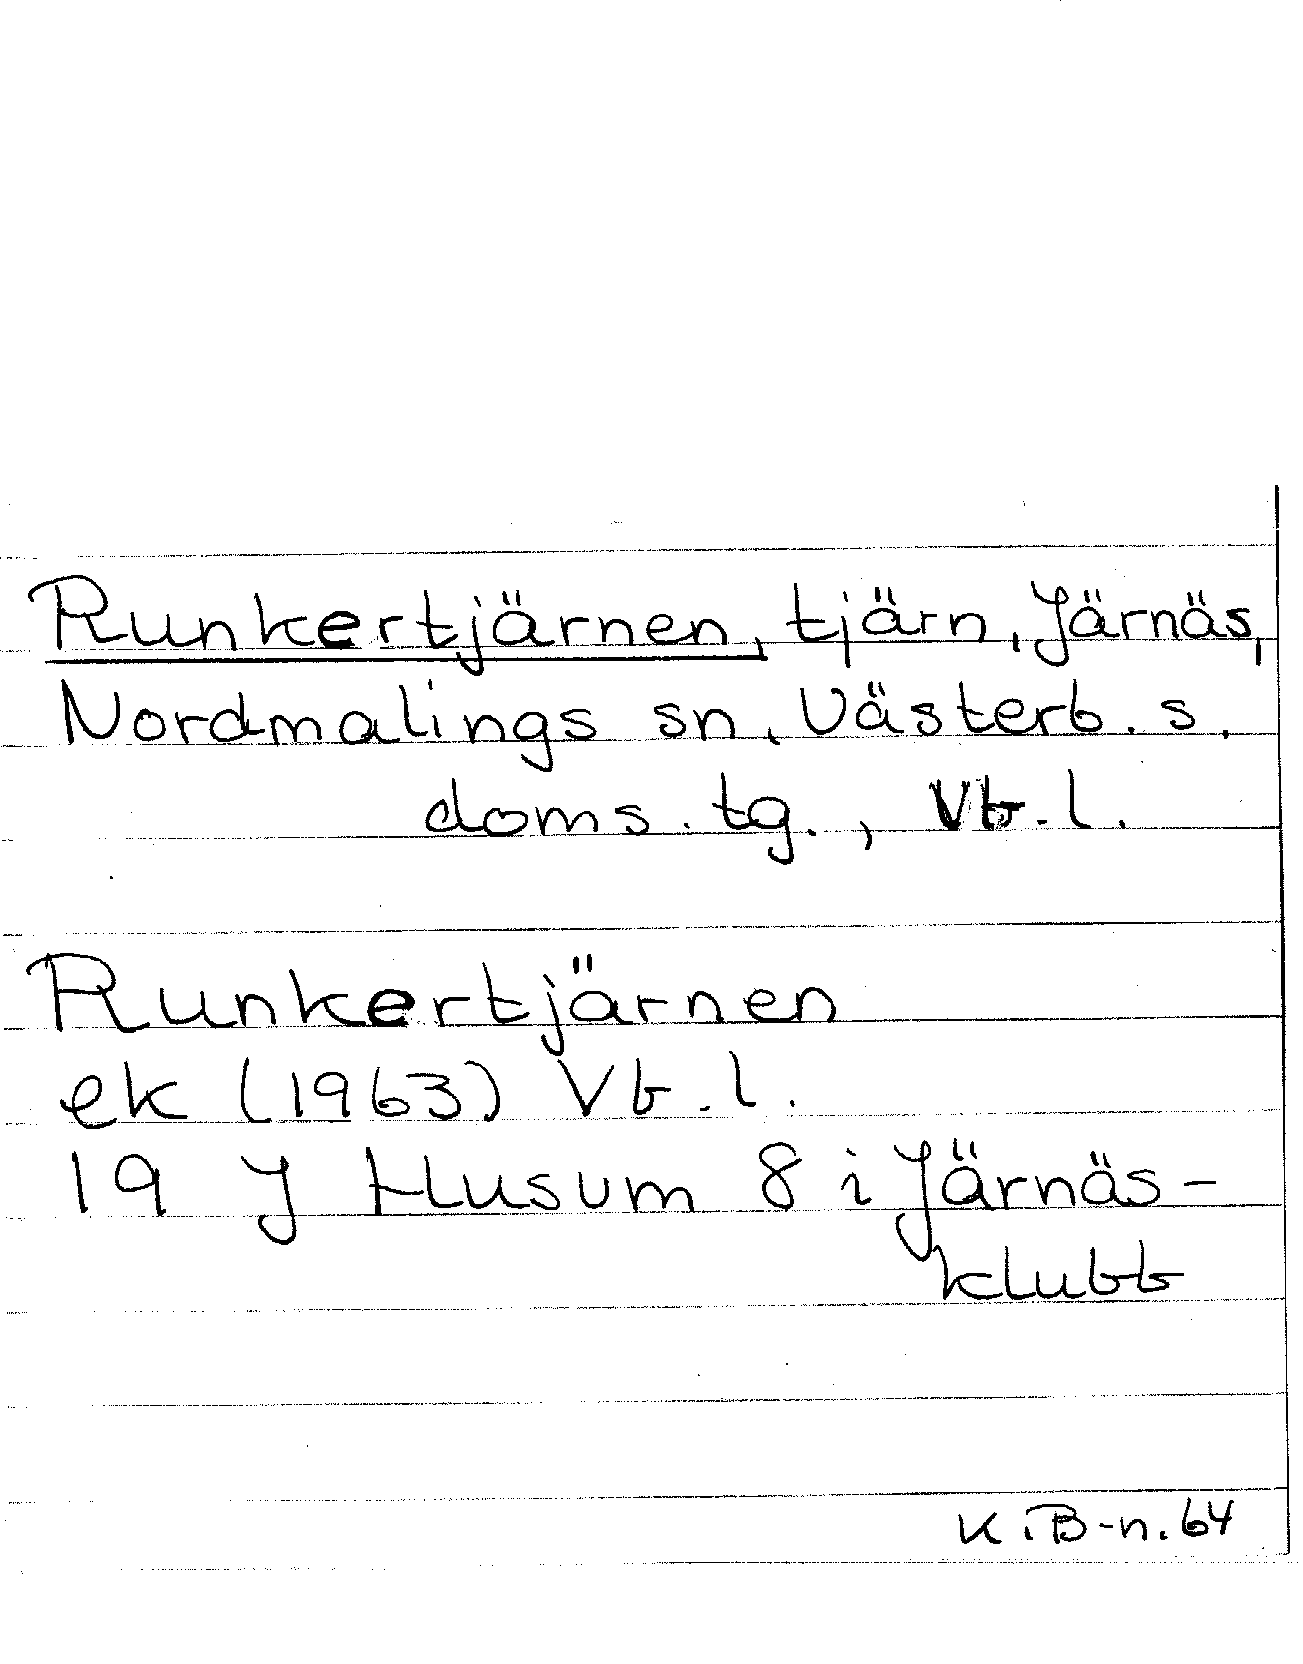 Runkertjärnen, tjärn, Järnäs,
Nordmalings sn, Västerb. s.
doms. tg., Vb. l.
Runkertjärnen
ek (1963) Vb. l.
19 J Husum 8 i Järnäs-
klubb
K. B-n. 64